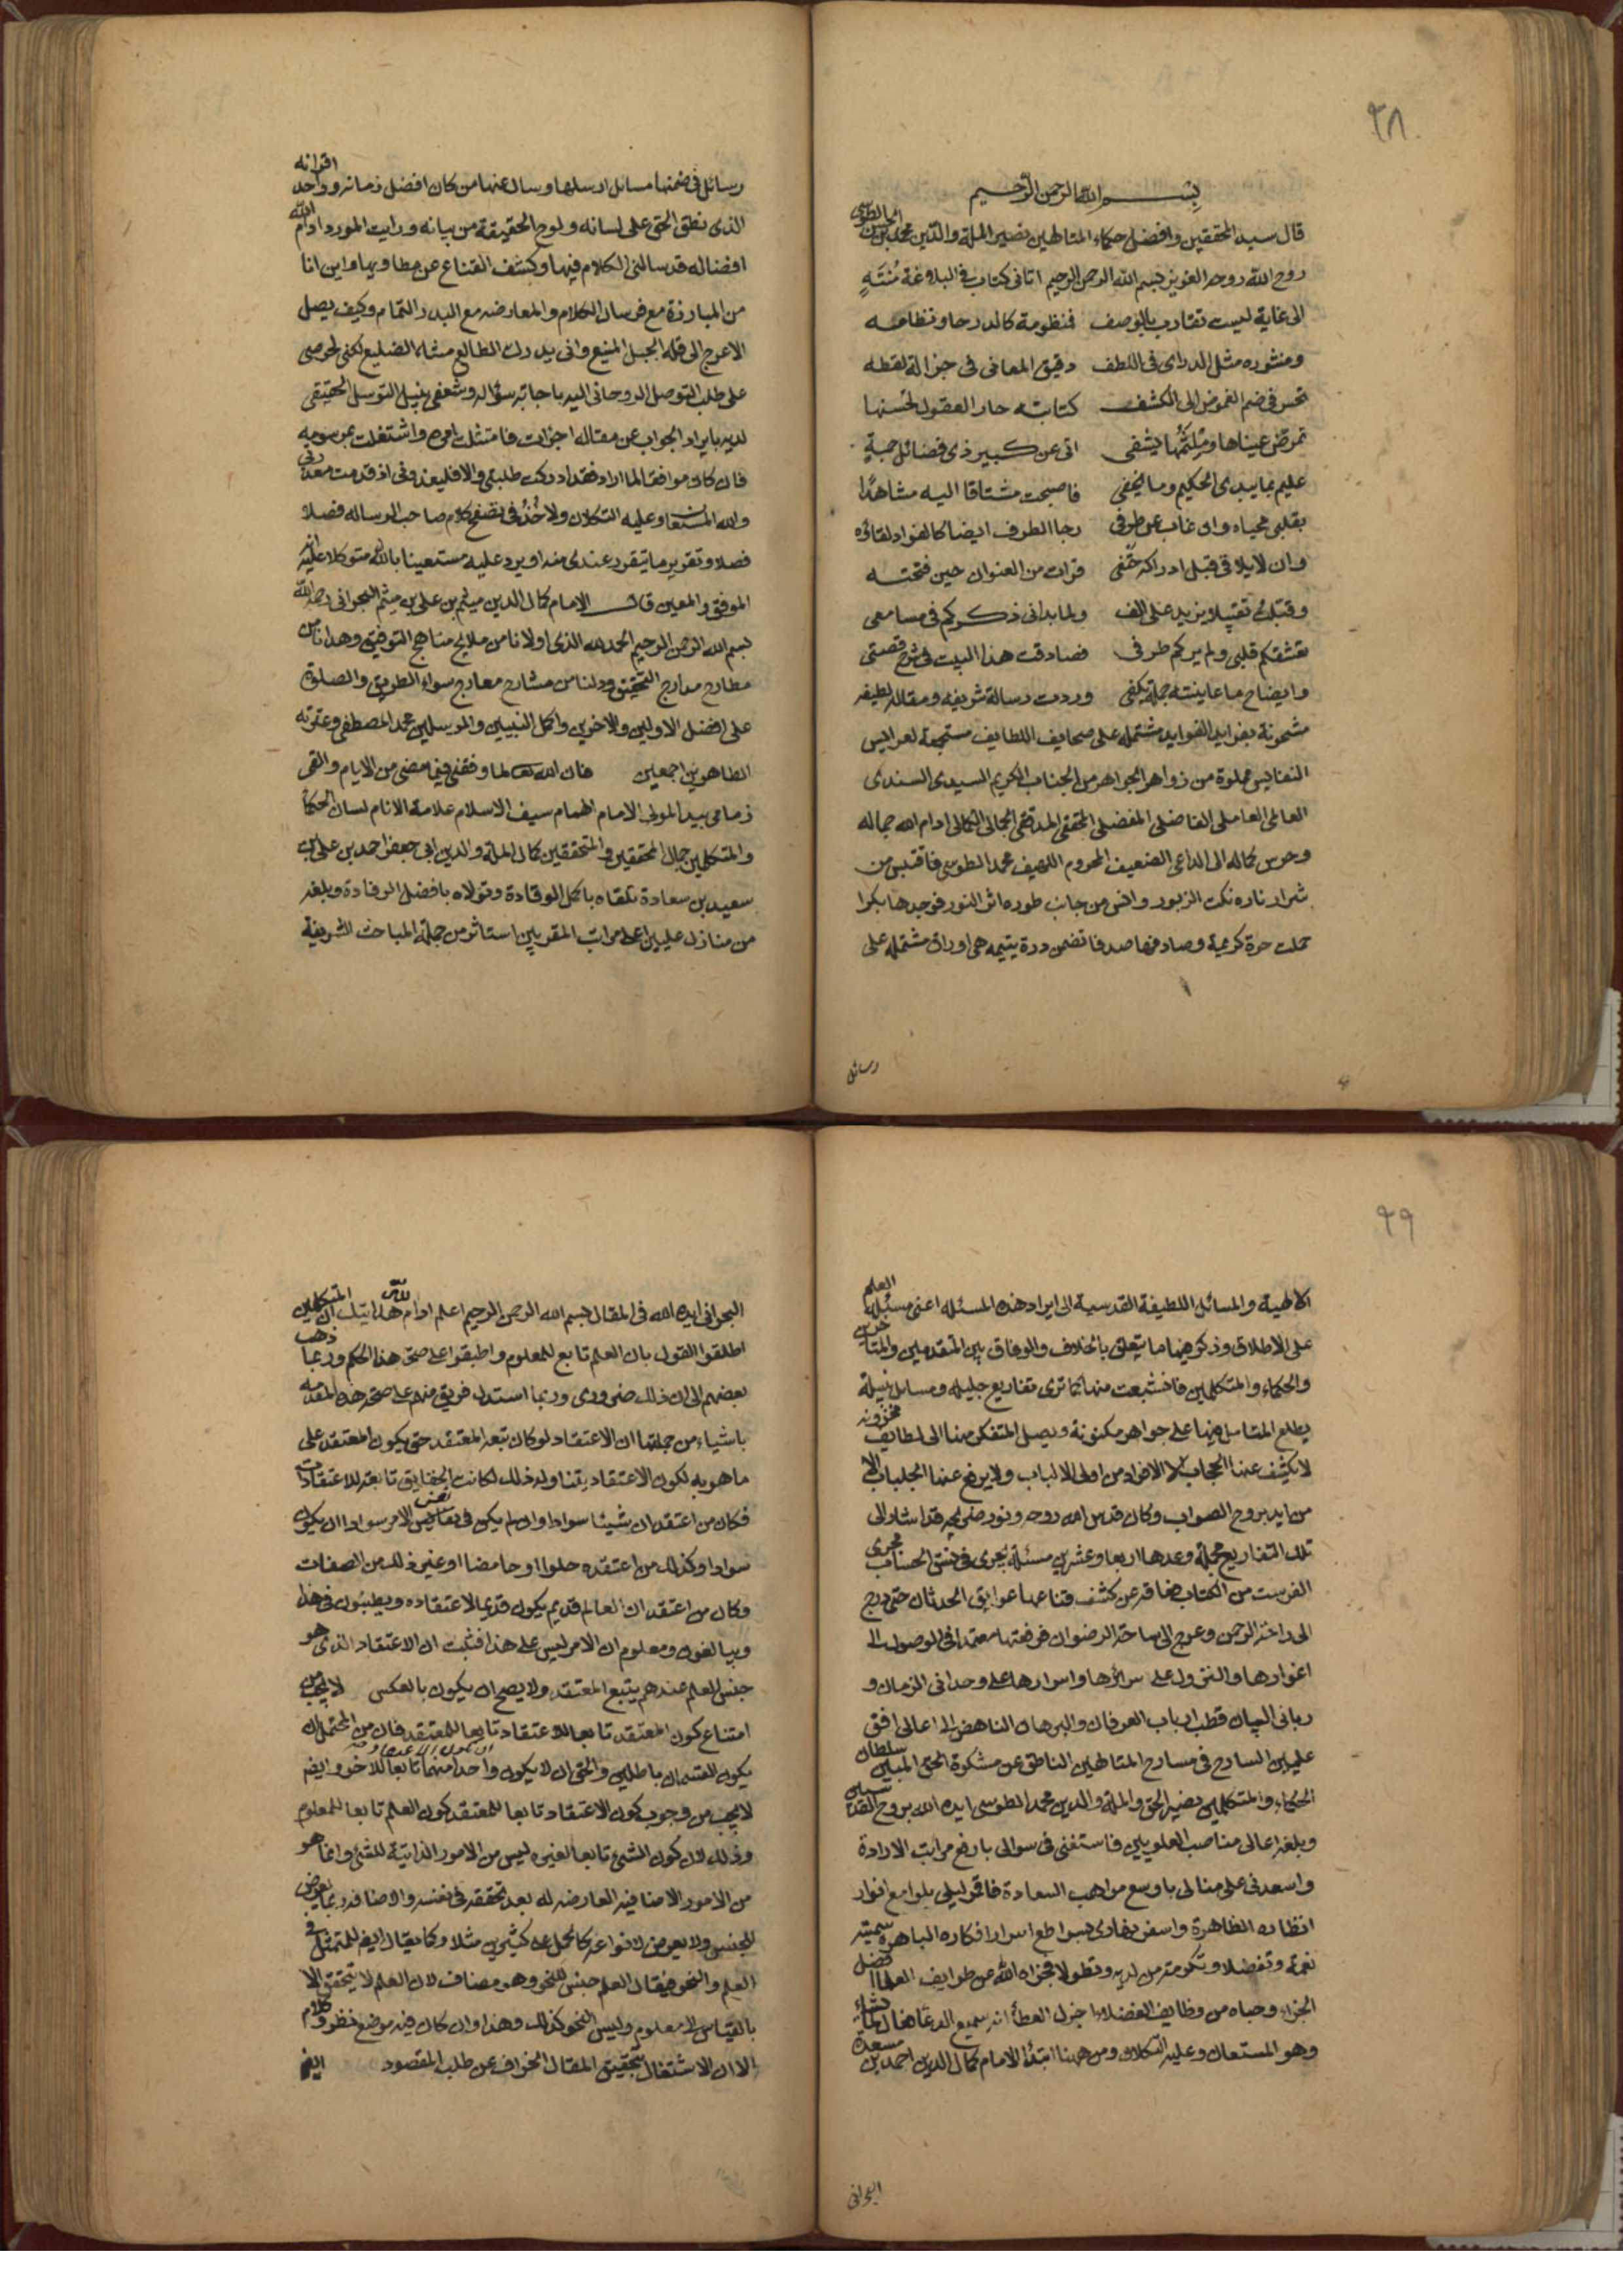 ٩٨
بسم الله الرحمن الرحيم
قال سيد المحققين وافضل حكماء المتالهين نصير الملة والدين محمد بن الحسن الطوسي
روح الله روحه العزيز بسم الله الرحمن الرحيم اتاني كتاب في البلاغة مُنتَهٍ
الى غاية ليست تقارب بالوصف فمنظومة كالدر حاو نظامه
ومنثوره مثل الدراى في اللطف دقيق المعاني في جزالة لفظه
تحس في ضم الغموض الى الكشف كتابته حار العقول لحسنها
تمرض عيناها ومُلثَمُها يشفى اتى عن كبير ذي فضائل جمةٍ
عليم بما يبدى الحكيم وما يخفى فاصبحت مشتاقا اليه مشاهدًا
بقلبي محياه وان غاب عن طرفى رجا الطرف ايضا كالفواد لقاؤه
وان لا يلاقى قبل ادراكه حتفى قرات من العنوان حين فتحته
وقبلته تقبيلا يزيد على الف ولما بدا لي ذكركم في مسامعى
تعشقكم قلبي ولم يركم طرفى فصادفت هذا البيت في شرح قصتي
وايضاح ما عاينته جملة يكفى وردت رسالة شريفه ومقاله لطيفه
مشحونة بفرايد الفوايد مشتمله على صحايف اللطايف مستجمعة لعرايس
النفايس مملوة من زواهر الجواهر من الجناب الكريم السيدى السندى
العالمى العاملى الفاضلى المفضلى المحققى المدققى الجمالى الكمالى ادام الله جماله
وحرس كماله الى الداعى الضعيف المحروم اللهيف محمد الطوسي فاقتبس من
شرار ناره نكت الزبور وانس من جانب طوره اثر النور فوجدها بكرا
حملت حرة كريمة وصادفها صدفا تضمن درة يتيمه هى اوراق مشتمله على
رسائل
رسائل في ضمنها مسايل ارسلها وسال عنها من كان افضل زمانه وواحد اقرانه
الذى نطق الحق على لسانه ولوح الحقيقة من بيانه ورايت المورد ادام الله
افضاله قد سالنى الكلام فيها وكشف القناع عن مطاويها واين انا
من المبارزة مع فرسان الكلام والمعارضه مع البدر التمام وكيف يصل
الاعرج الى قلة الجبل المنيع وانى يدرك الظالع مثله الضليع لكنى لحرصى
على طلب التوصل الروحانى اليه باجابة سؤاله وشغفى بنيل التوسل الحقيقى
لديه بايراد الجواب عن مقاله اجزات فامتثلت امره واشتغلت بمرسومه
فان كان موافقا لما اراد فقد ادركت طلبتى والا فليعذرنى اذ قدمت معذرتى
والله المستعان وعليه التكلان ولاخُذ في تصفح كلام صاحب الرساله فصلا
فصلا وتقرير ما يتقرر عندى منه او يرد عليه مستعينا بالله متوكلا عليه انه
الموفق والمعين قال الامام كمال الدين ميثم بن على بن ميثم البحرانى رحمه الله
بسم الله الرحمن الرحيم الحمد لله الذى اولانا من ملايح مناهج التوفيق وهدانا من
مطارح مدارج التحقيق ودلنا من مشارح معارج سواء الطريق والصلوة
على افضل الاولين والاخرين واكمل النبيين والمرسلين محمد المصطفى وعترته
الطاهرين اجمعين فان الله تعالى لما وفقنى فيما مضى من الايام والقى
زمامى بيد المولى الامام الهمام سيف الاسلام علامة الانام لسان الحكما
والمتكلمين جمال المحققين والمتحققين كمال الملة والدين ابى جعفر احمد بن على بن
سعيد بن سعادة تلقاه باكمل الوفادة وتولاه بافضل الرفادة وبلغه
من منازل عليين اعلى مراتب المقربين استاثر من جملة المباحث الشريفة
٩٩
الالهية والمسائل اللطيفة القدسية الى ايراد هذه المسئله اعنى مسئلة العلم
على الاطلاق وذكر فيها ما يتعلق بالخلاف والوفاق بين المتقدمين والمتاخرين
والحكماء والمتكلمين فانشعبت منها كما ترى تفاريع جليله ومسايل نبيلة
يطلع المتامل فيها على جواهر مكنونة ويصل المتفكر منها الى لطايف مخزونه
لا يكشف عنها الحجاب الا الافراد من اولى الالباب ولا يرفع عنها الجلباب الا
من ايد بروح الصواب وكان قدس الله روحه ونور ضريحه قد اشار الى
تلك التفاريع مجملة وعدها اربعا وعشرين مسئلة تجرى في متن الحساب مجرى
الفهرست من الكتاب فعاقه عن كشف قناعها عوايق الحدثان حتى درج
الى راحة الرحمن وعرج الى ساحة الرضوان فرفعتها معتمدا في الوصول الى
اغوارها والنزول على سرائرها واسرارها على وحدانى الزمان و
ربانى البيان قطب ارباب العرفان والبرهان الناهض الى اعالى افق
عليين السارح في مسارح المتالهين الناطق عن مشكوة الحق المبين سلطان
الحكماء والمتكلمين نصير الحق والملة والدين محمد الطوسى ايده الله بروح القدسيين
وبلغه اعالى مناصب العلويين فاستغنى في سوالى بارفع مراتب الارادة
واسعدنى على منالى باوسع مواهب السعادة فاقمر ليلى بلوامع انوار
انظاره الظاهرة واسفر نهارى بسواطع اسرار افكاره الباهره سمية
نعمة وتفضلا وتكرمة من لديه وتطولا فجزاه الله عن طوايف العلما افضل
الجزاء وحباه من وظايف الفضلا اجزل العطاء انه سميع الدعا فعال لما يشاء
وهو المستعان وعليه التكلان ومن ههنا ابتدأ الامام كمال الدين احمد بن مسعدة
البحرانى
البحرانى ايده الله في المقال بسم الله الرحمن الرحيم اعلم ادام الله هدايتك ان المتكلمين
اطلقوا القول بان العلم تابع للمعلوم واطبقوا على صحة هذا الحكم وربما ذهب
بعضهم الى ان ذلك ضرورى وربما استدل فريق منهم على صحة هذه المقدمة
باشياء من جملتها ان الاعتقاد لو كان يتبعه المعتقد حتى يكون المعتقد على
ما هو به لكون الاعتقاد يقتاوله ذلك لكانت الحقايق تابعة للاعتقادات
فكان من اعتقد ان شيئا سواد وان لم يكن في نفس الامر سوادا ان يكون
سوادا وكذلك من اعتقده حلوا او حامضا او غير ذلك من الصفات
وكان من اعتقد ان العالم قديم يكون قديما لاعتقاده ويطنبون في هذا
ويبالغون ومعلوم ان الامر ليس على هذا فثبت ان الاعتقاد الذى هو
جنس للعلم عندهم يتبع المعتقد ولا يصح ان يكون بالعكس لا يجب من
امتناع كون المعتقد تابعا للاعتقاد تابعا للمعتقد فان من المحتمل ان
يكون القسمان باطلين والحق ان لا يكون واحد منهما تابعا للاخر وايضا
لا يجب من وجوب كون الاعتقاد تابعا للمعتقد كون العلم تابعا للمعلوم
وذلك لان كون الشئ تابعا لغيره ليس من الامور الذاتية للشئ وانما هو
من الامور الاضافيه العارضه له بعد تحققه في نفسه والاضافة ربما يعرض
للجنس ولا يعرض لانواعه كالحمل على كثيرين مثلا وكما يقال ايضا للمتمثل في
العلم والنحو فيقال العلم جنس للنحو وهو مضاف لان العلم لا يتحقق الا
بالقياس الى معلوم وليس النحو كذلك وهذا وان كان فيه موضع نظر وكلام
الا ان الاشتغال بتحقيق المقال انحراف عن طلب المقصود ايضا